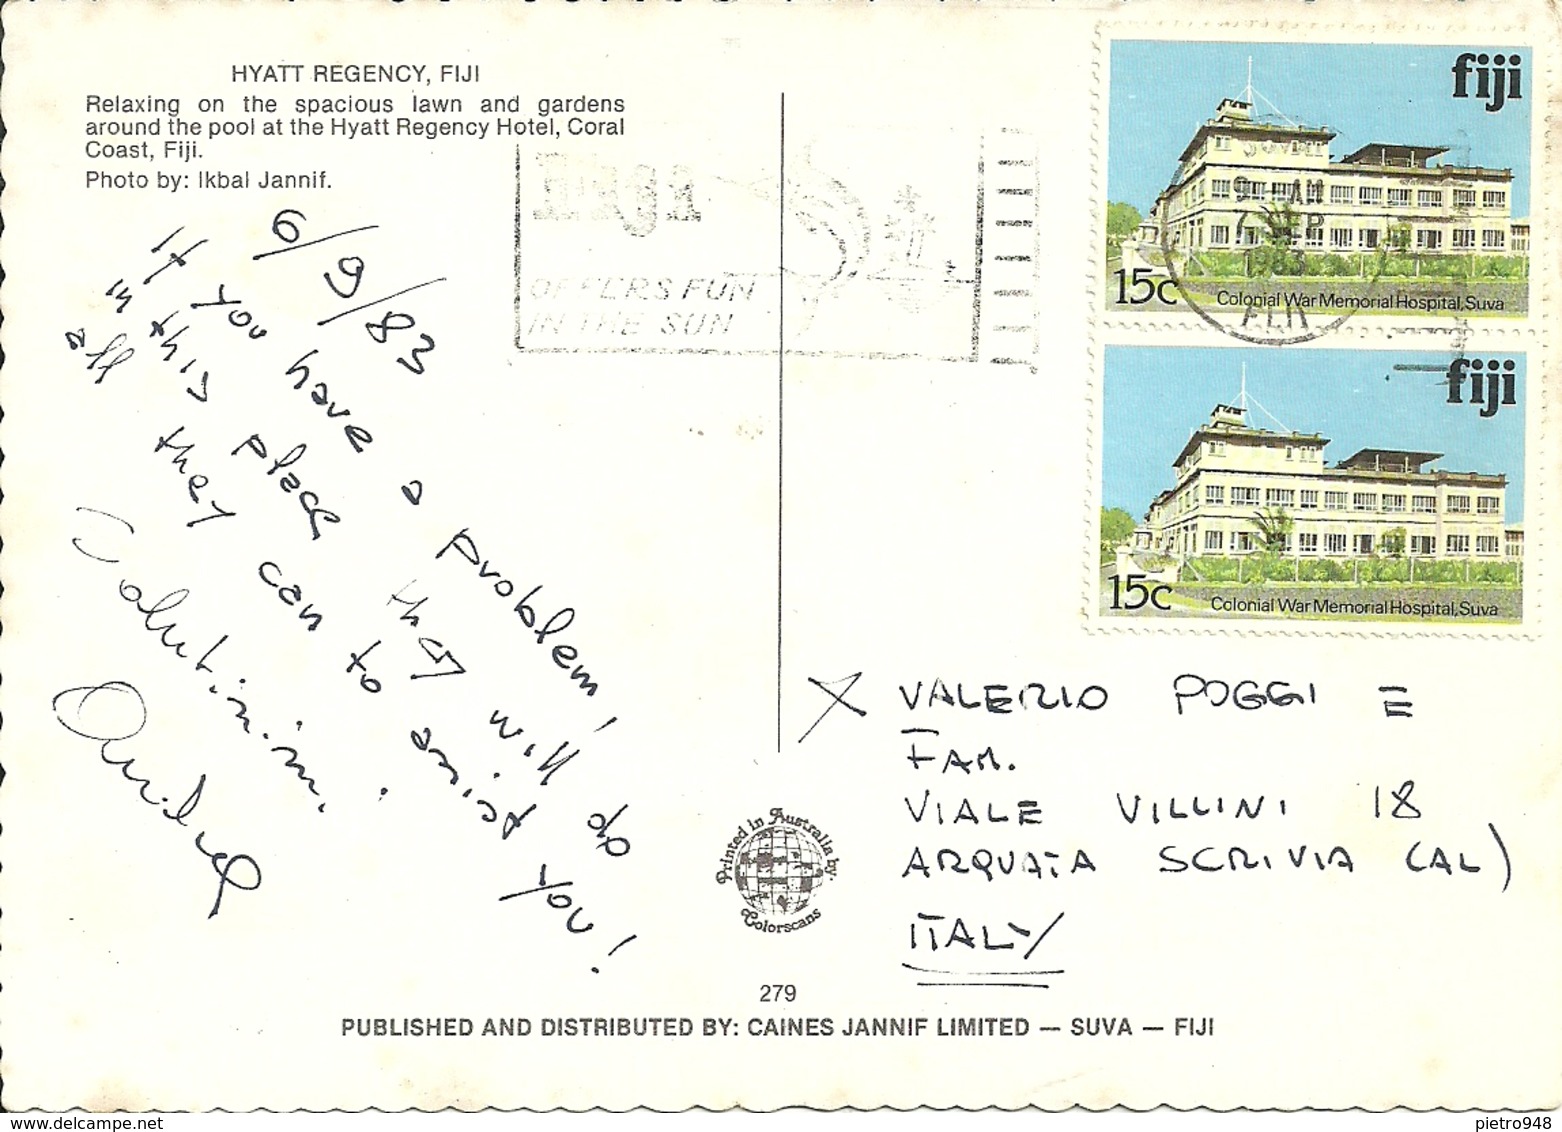 HYATT REGENCY, FIJI
Relaxing on the spacious lawn and gardens
around the pool at the Hyatt Regency Hotel, Coral
Coast, Fiji.
Photo by: Ikbal Jannif.
6/9/83
If you have a problem!
in this place they will do
all they can to assist you!
Salutinini.
Fiji
OFFERS FUN
IN THE SUN
fiji
SUVA
9 - AM
7 SEP
1983
FIJI
15c Colonial War Memorial Hospital, Suva
fiji
15c Colonial War Memorial Hospital, Suva
X VALERIO POGGI E
FAM.
VIALE VILLINI 18
ARQUATA SCRIVIA (AL)
ITALY
Printed in Australia by:
Colorscans
279
PUBLISHED AND DISTRIBUTED BY: CAINES JANNIF LIMITED — SUVA — FIJI
delcampe.net
pietro948